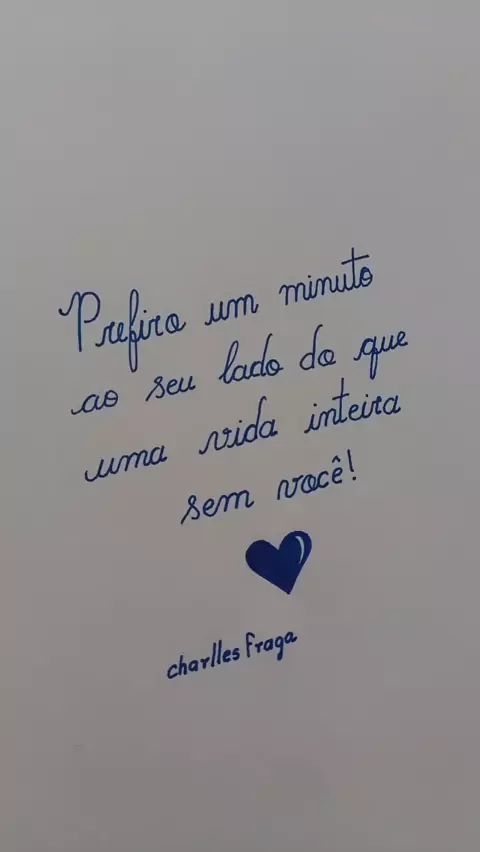 Prefiro um minuto
ao seu lado do que
uma vida inteira
sem você!
charlles fraga